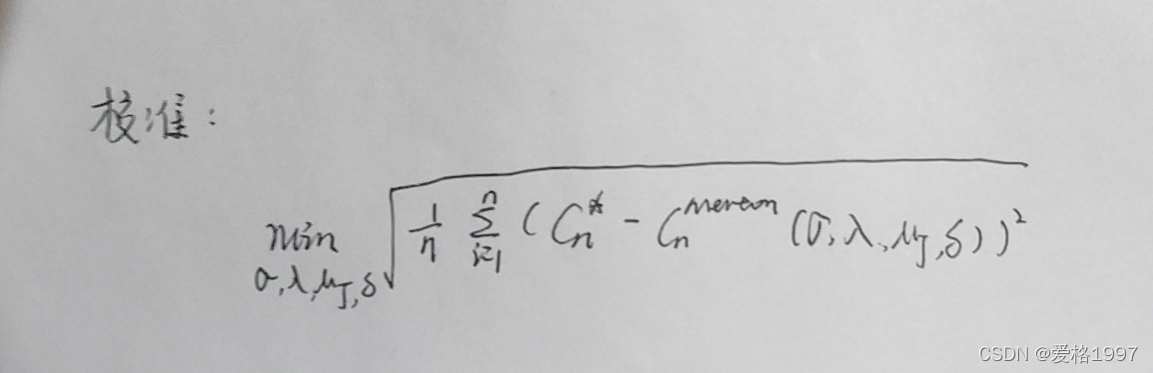 校准:
min σ,λ,μ_J,δ √( 1/n Σ_{i=1}^{n} ( C_n^* - C_n^{Merton} (σ,λ,μ_J,δ) )² )
CSDN @爱格1997